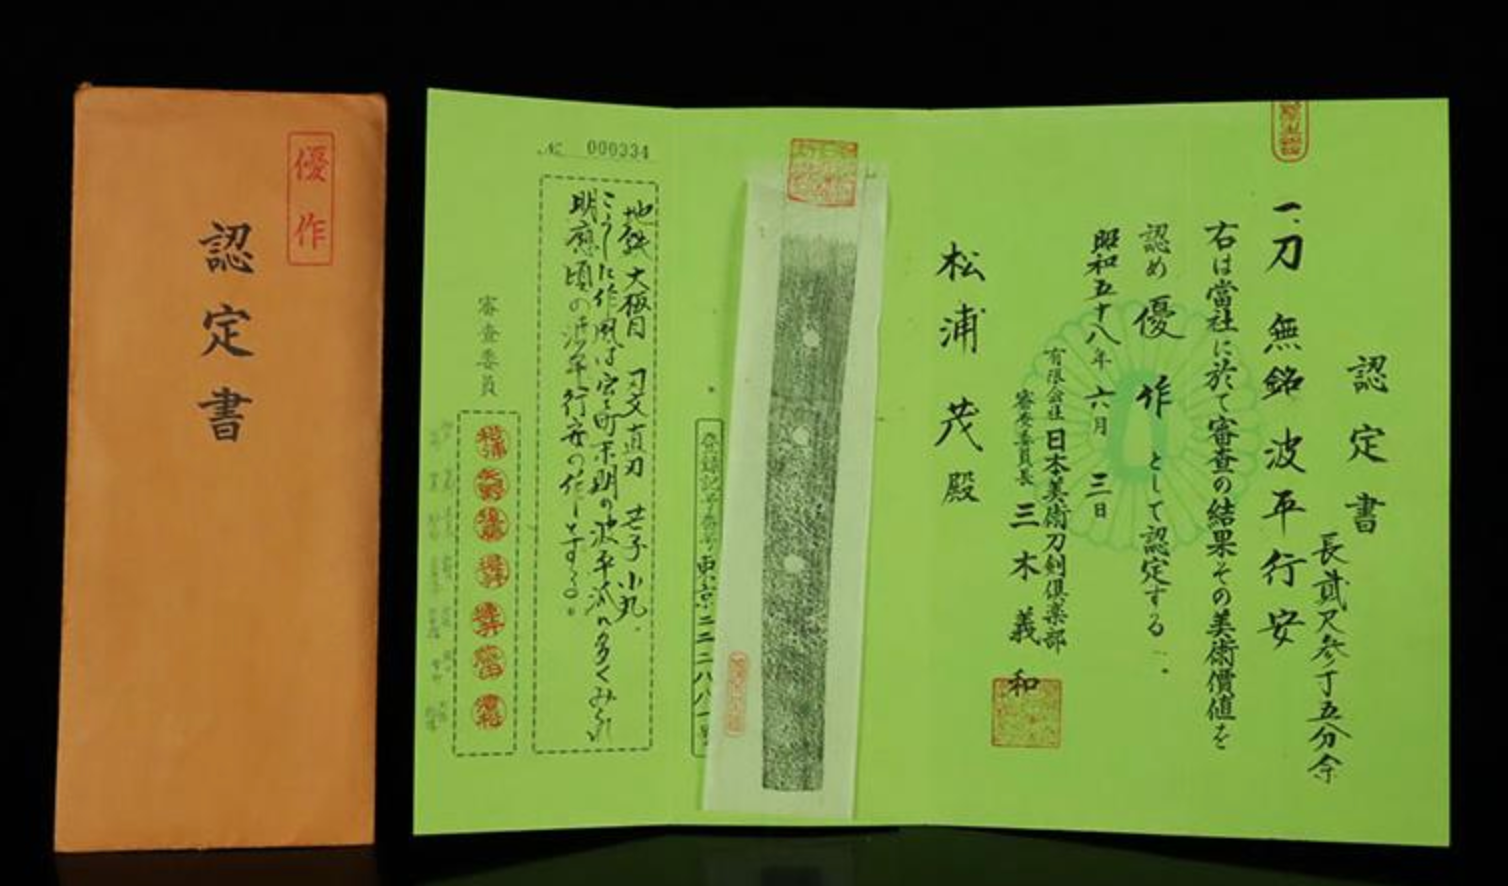 優作
認定書
認定書
一、刀 無銘 波平行安
長貳尺参寸五分余
右は當社に於て審査の結果その美術價値を
認め優作として認定する。
昭和五十八年六月三日
有限会社 日本美術刀剣倶楽部
審査委員長 三木義和
松浦茂殿
登録記号番号 東京二二二八八一号
№ 000334
地鉄 大板目 刃文直刃 茫子小丸
作風は室町末期の波平派の多くみられ
明應頃の波平行安の作とする。
審査委員